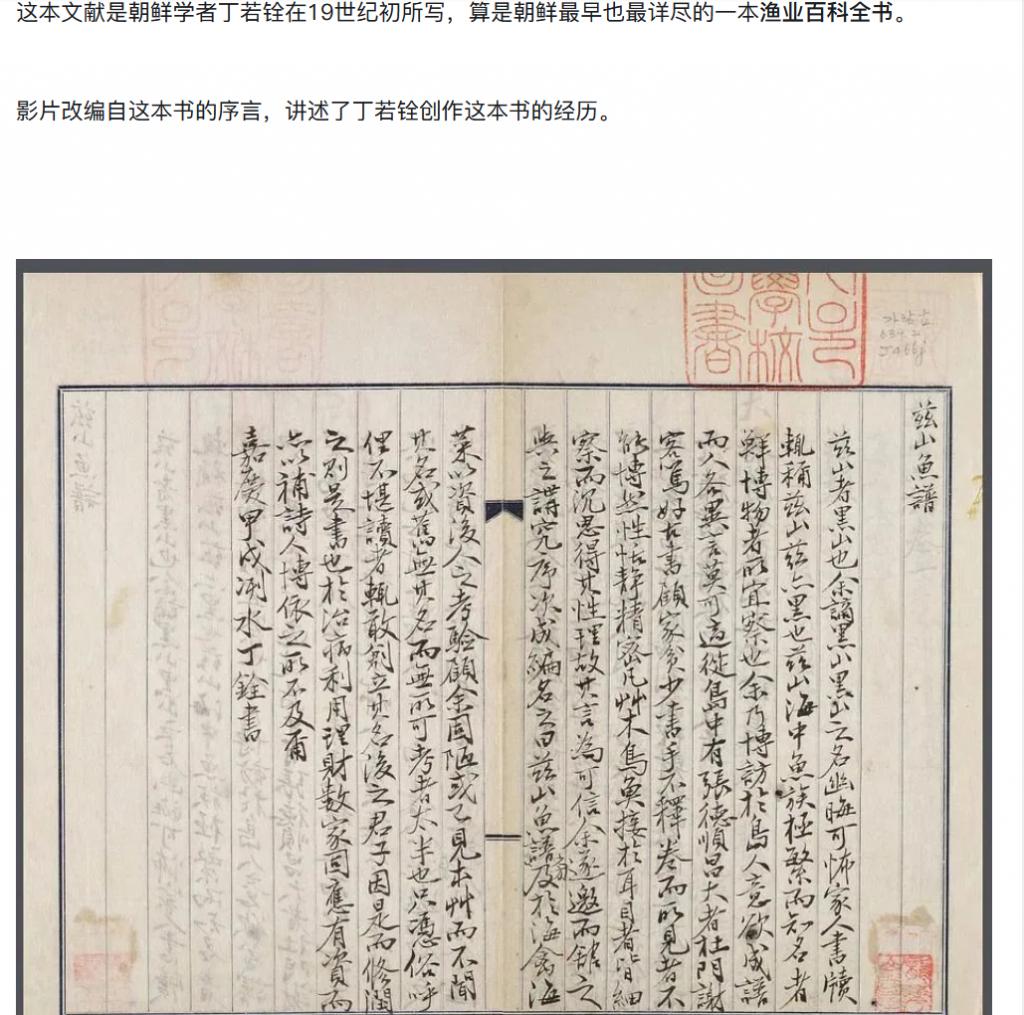 这本文献是朝鲜学者丁若铨在19世纪初所写，算是朝鲜最早也最详尽的一本渔业百科全书。
影片改编自这本书的序言，讲述了丁若铨创作这本书的经历。
學校
書
玆山魚譜
玆山者黑山也余謫黑山黑山之名幽晦可怖家人書牘
輒稱玆山玆亦黑也玆山海中魚族極繁而知名者
鮮博物者所宜察也余乃博訪於島人意欲成譜
而人各異言莫可適從島中有張德順昌大者杜門謝
客篤好古書顧家貧少書手不釋卷而所見者不
能博然性恬静精密凡艸木鳥魚接於耳目者皆細
察而沉思得其性理故其言為可信余遂邀而館之
與之講究序次成編名之曰玆山魚譜旁及於海禽海
菜以資後人之考驗顧余固陋或已見本艸而不聞
其名或舊無其名而無所可考者太半也只憑俗呼
俚不堪讀者輒敢創立其名後之君子因是而修潤
之則是書也於治病利用理財數家固應有資而
亦以補詩人博依之所不及爾
嘉慶甲戌洌水丁銓書